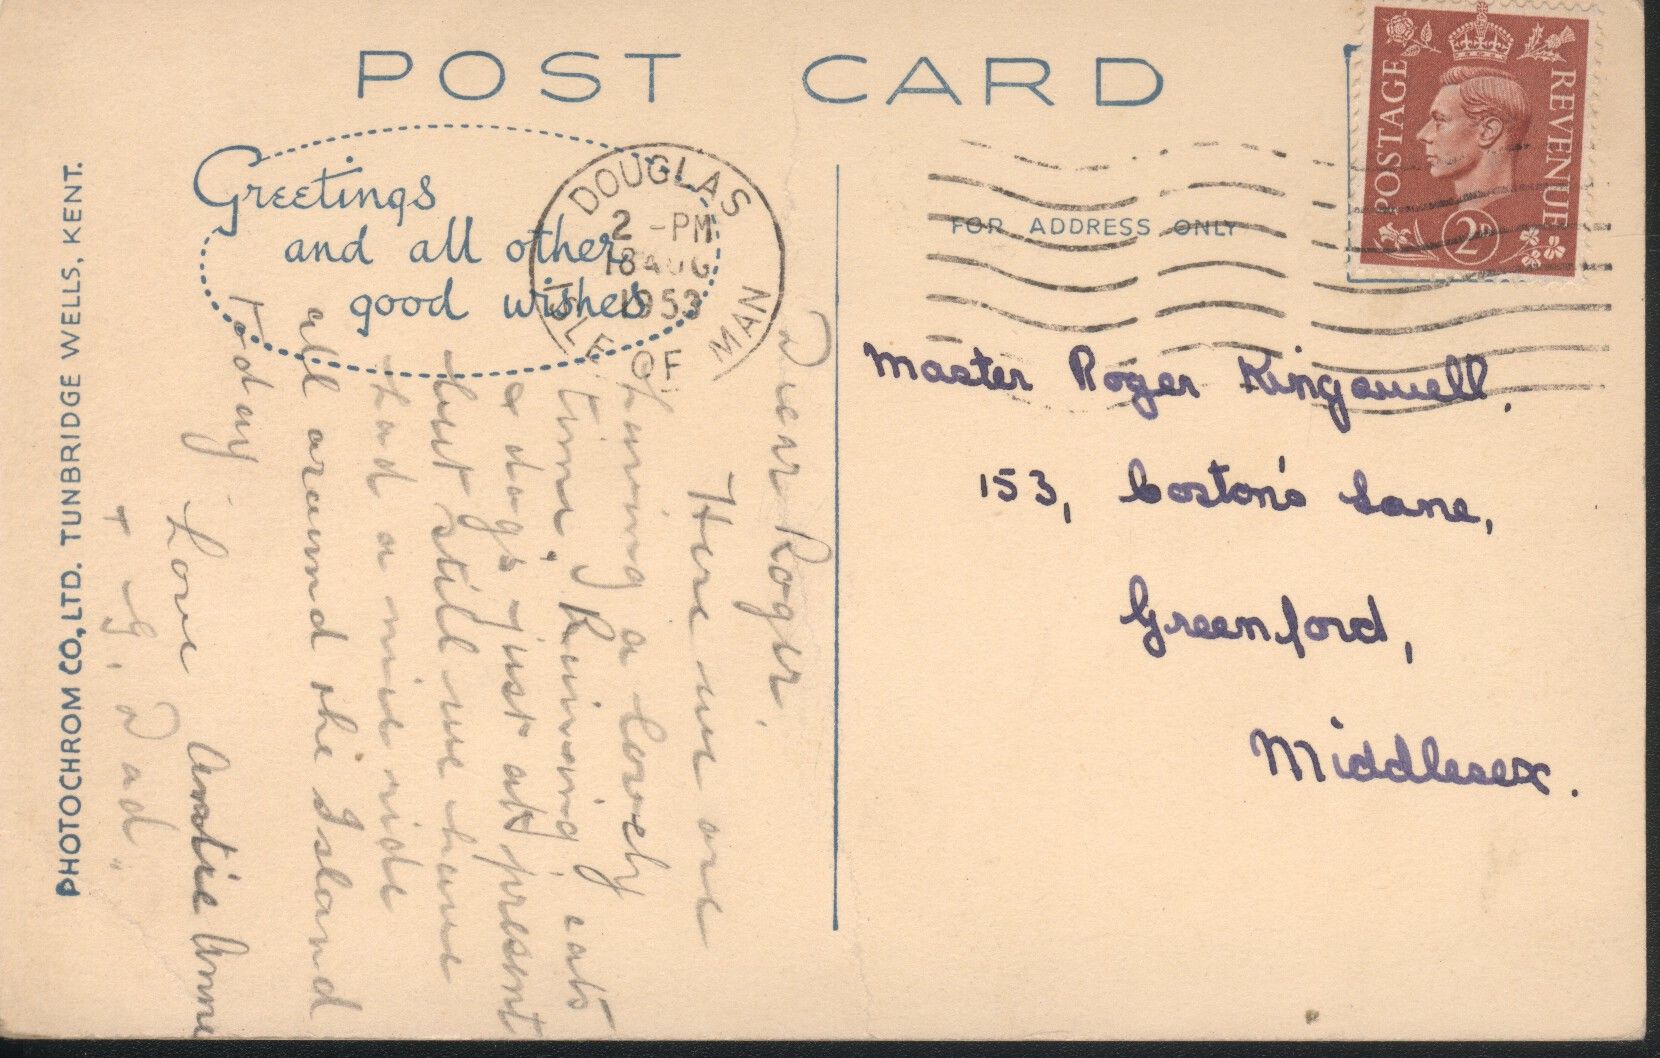 POST CARD
Greetings
and all other
good wishes
DOUGLAS
2 - PM
18 AUG
1953
ISLE OF MAN
POSTAGE REVENUE
2D
FOR ADDRESS ONLY
PHOTOCHROM CO, LTD. TUNBRIDGE WELLS, KENT.
Dear Roger,
Here we are
having a lovely
time. Raining cats
& dogs just at present
but still we have
had a nice ride
all around the Island
Today.
Love Auntie Anne
+ G. Dad.
Master Roger Kingswell,
153, Coston's Lane,
Greenford,
Middlesex.